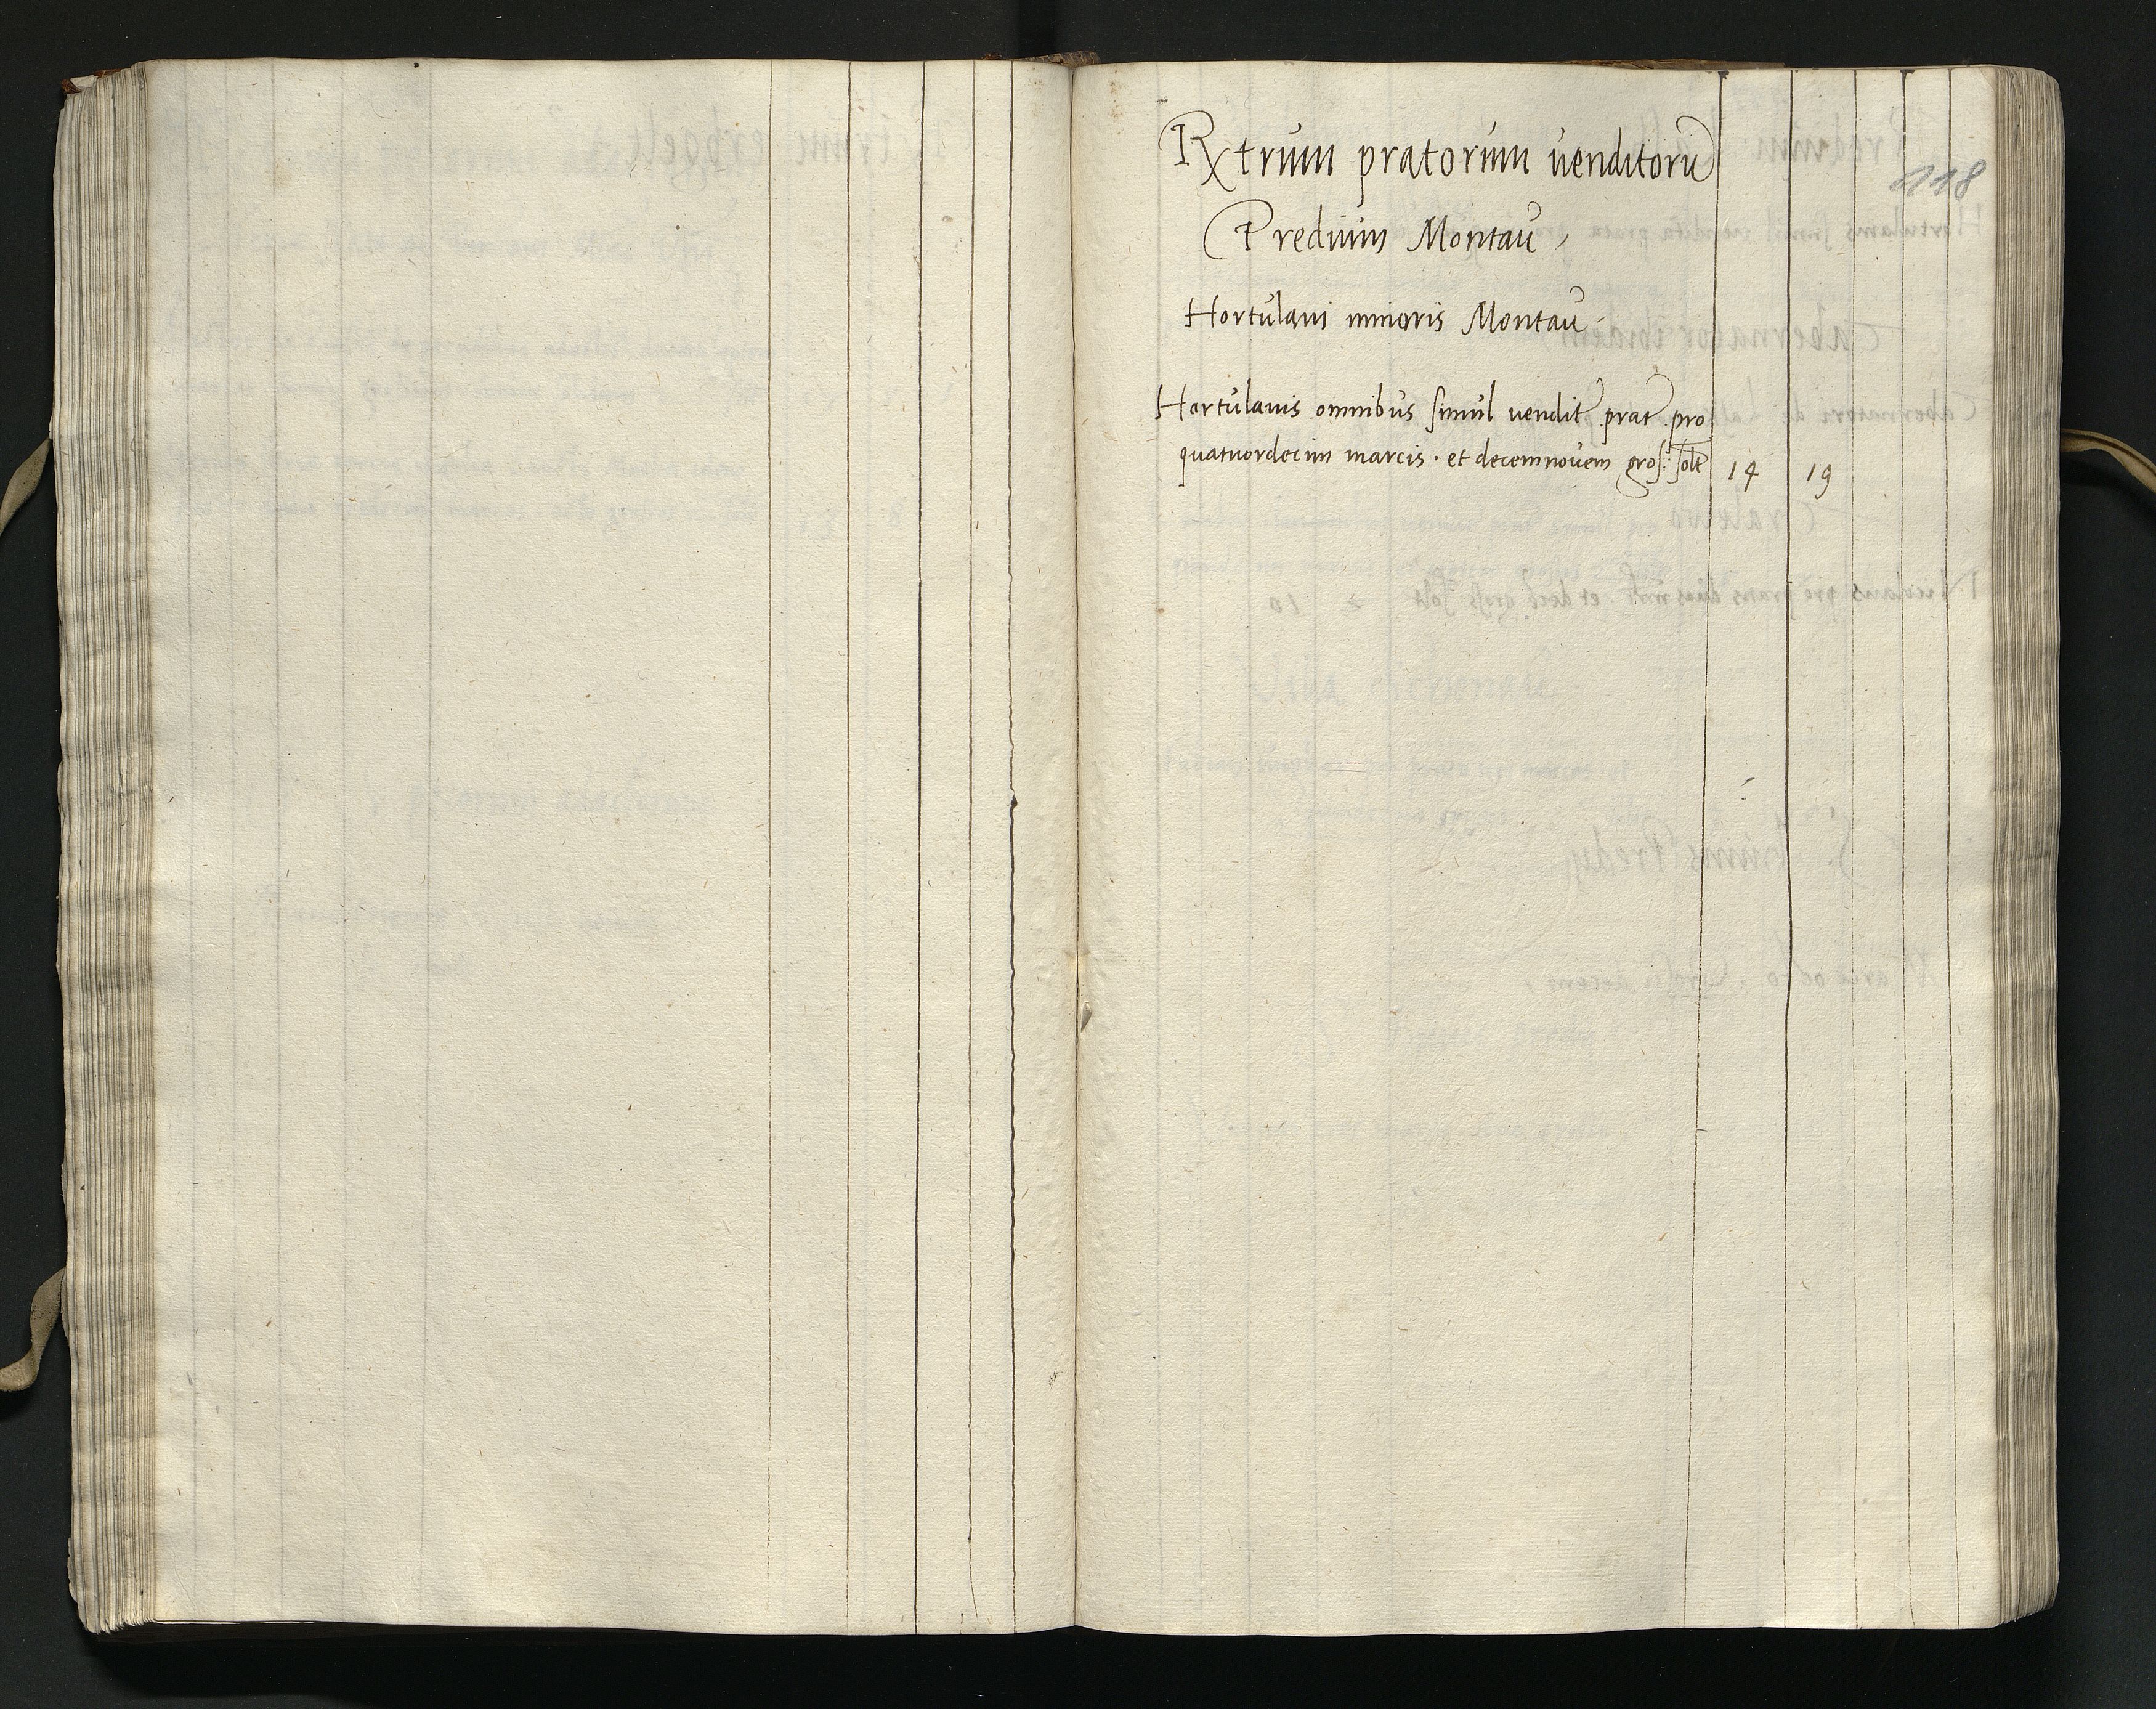 118
Rxtrum pratorum venditorũ
Predium Montau,
Hortulani minoris Montau.
Hortulanis omnibus simul vendit prat pro
quatuordecim marcis · et decemnovem gros: solt 14 19